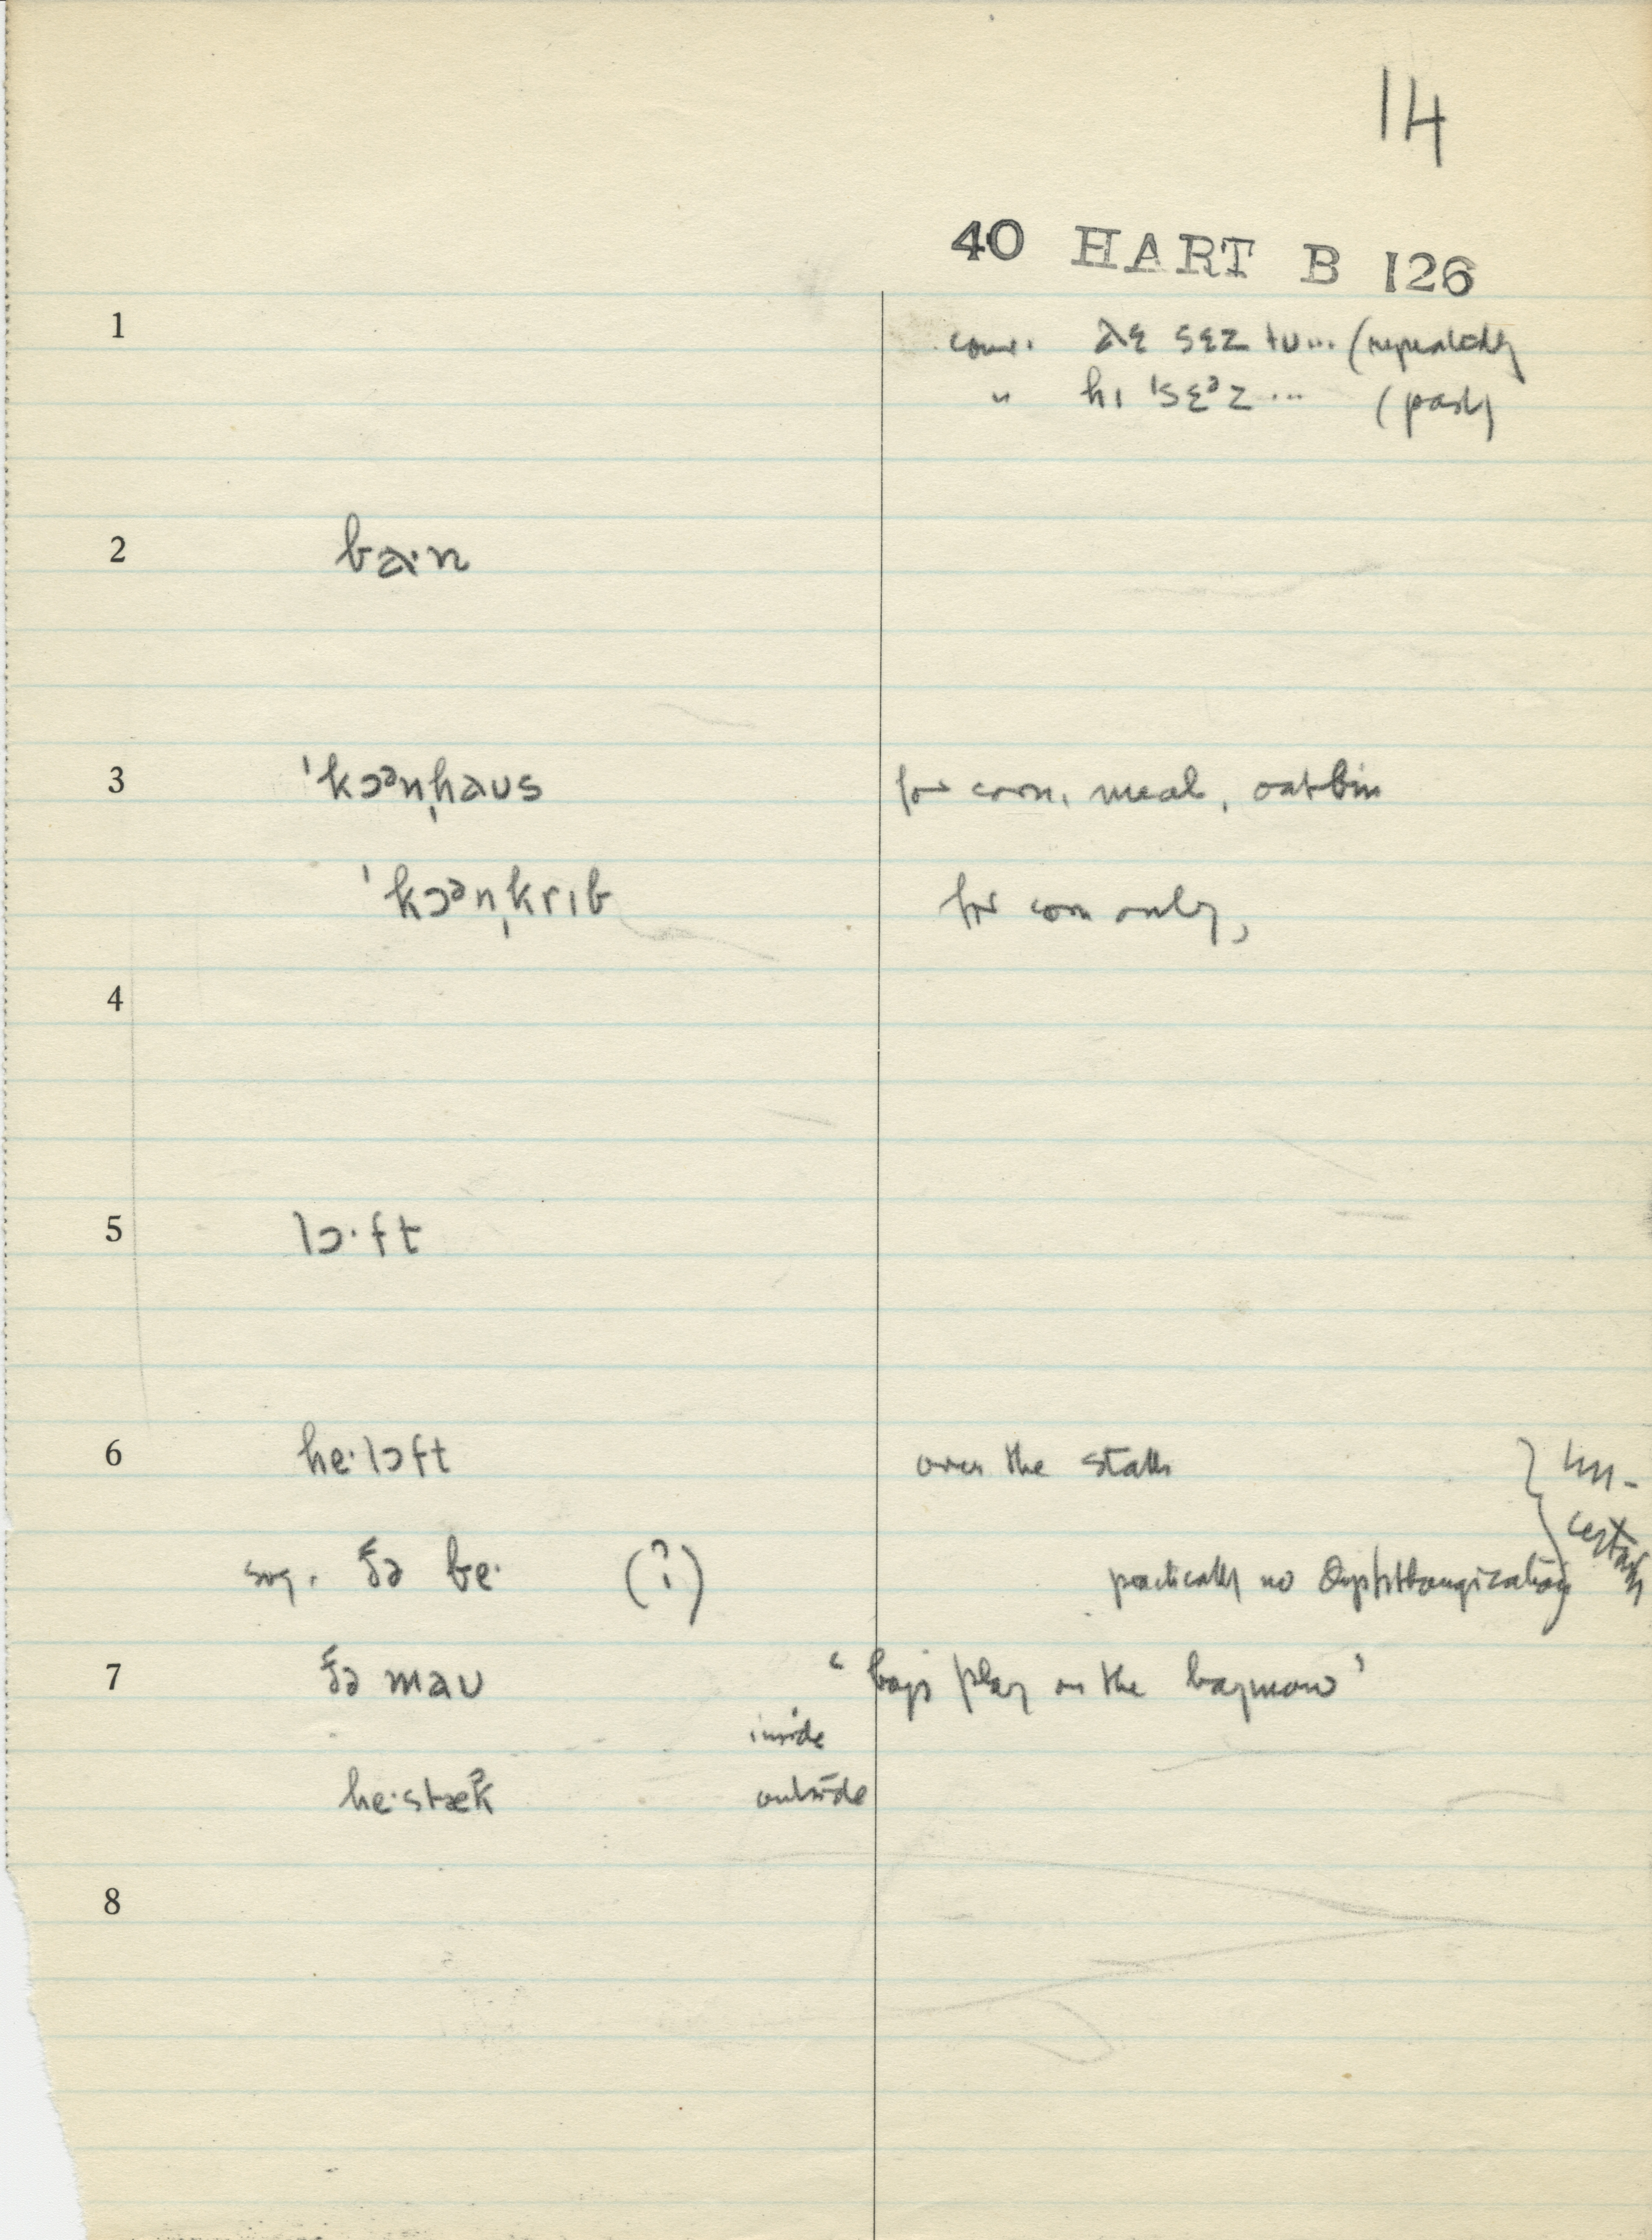 14
40 HART B 126
1 conv. ðɛ sɛz tu... (repeatedly)
" hɪ ˈsɛᵊz ... (past)
2 ba·n
3 ˈkɔᵊnˌhaus for corn, meal, oat bin
ˈkɔᵊnˌkrɪb for corn only,
4
5 lɔ·ft
6 he·lɔft over the stalls } un-
certain
sug. ðə be· (?) practically no diphthongization
7 ðə mau ‘boys play on the haymow’
inside
he·stæk outside
8